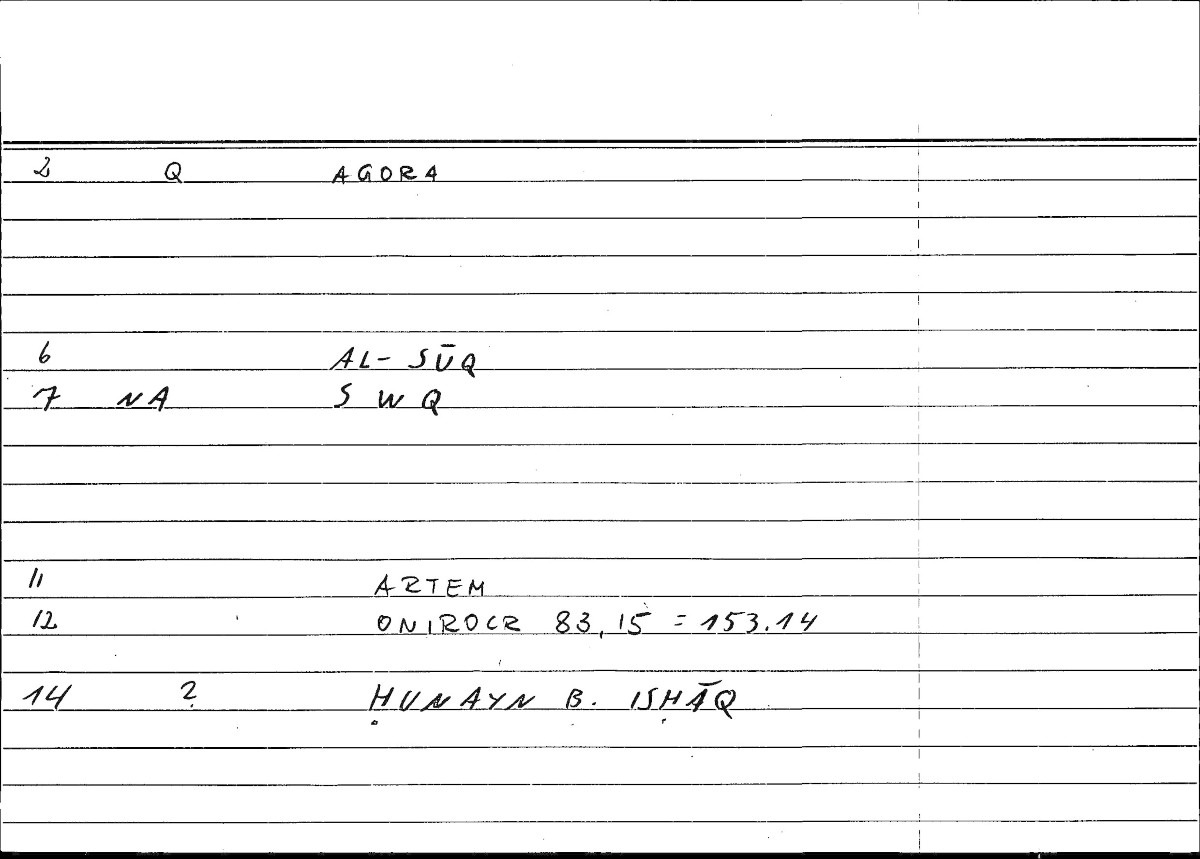 2 Q AGORA
6 AL-SŪQ
7 NA SWQ
11 ARTEM
12 ONIROCR 83,15 = 153.14
14 ? ḤUNAYN B. ISḤĀQ